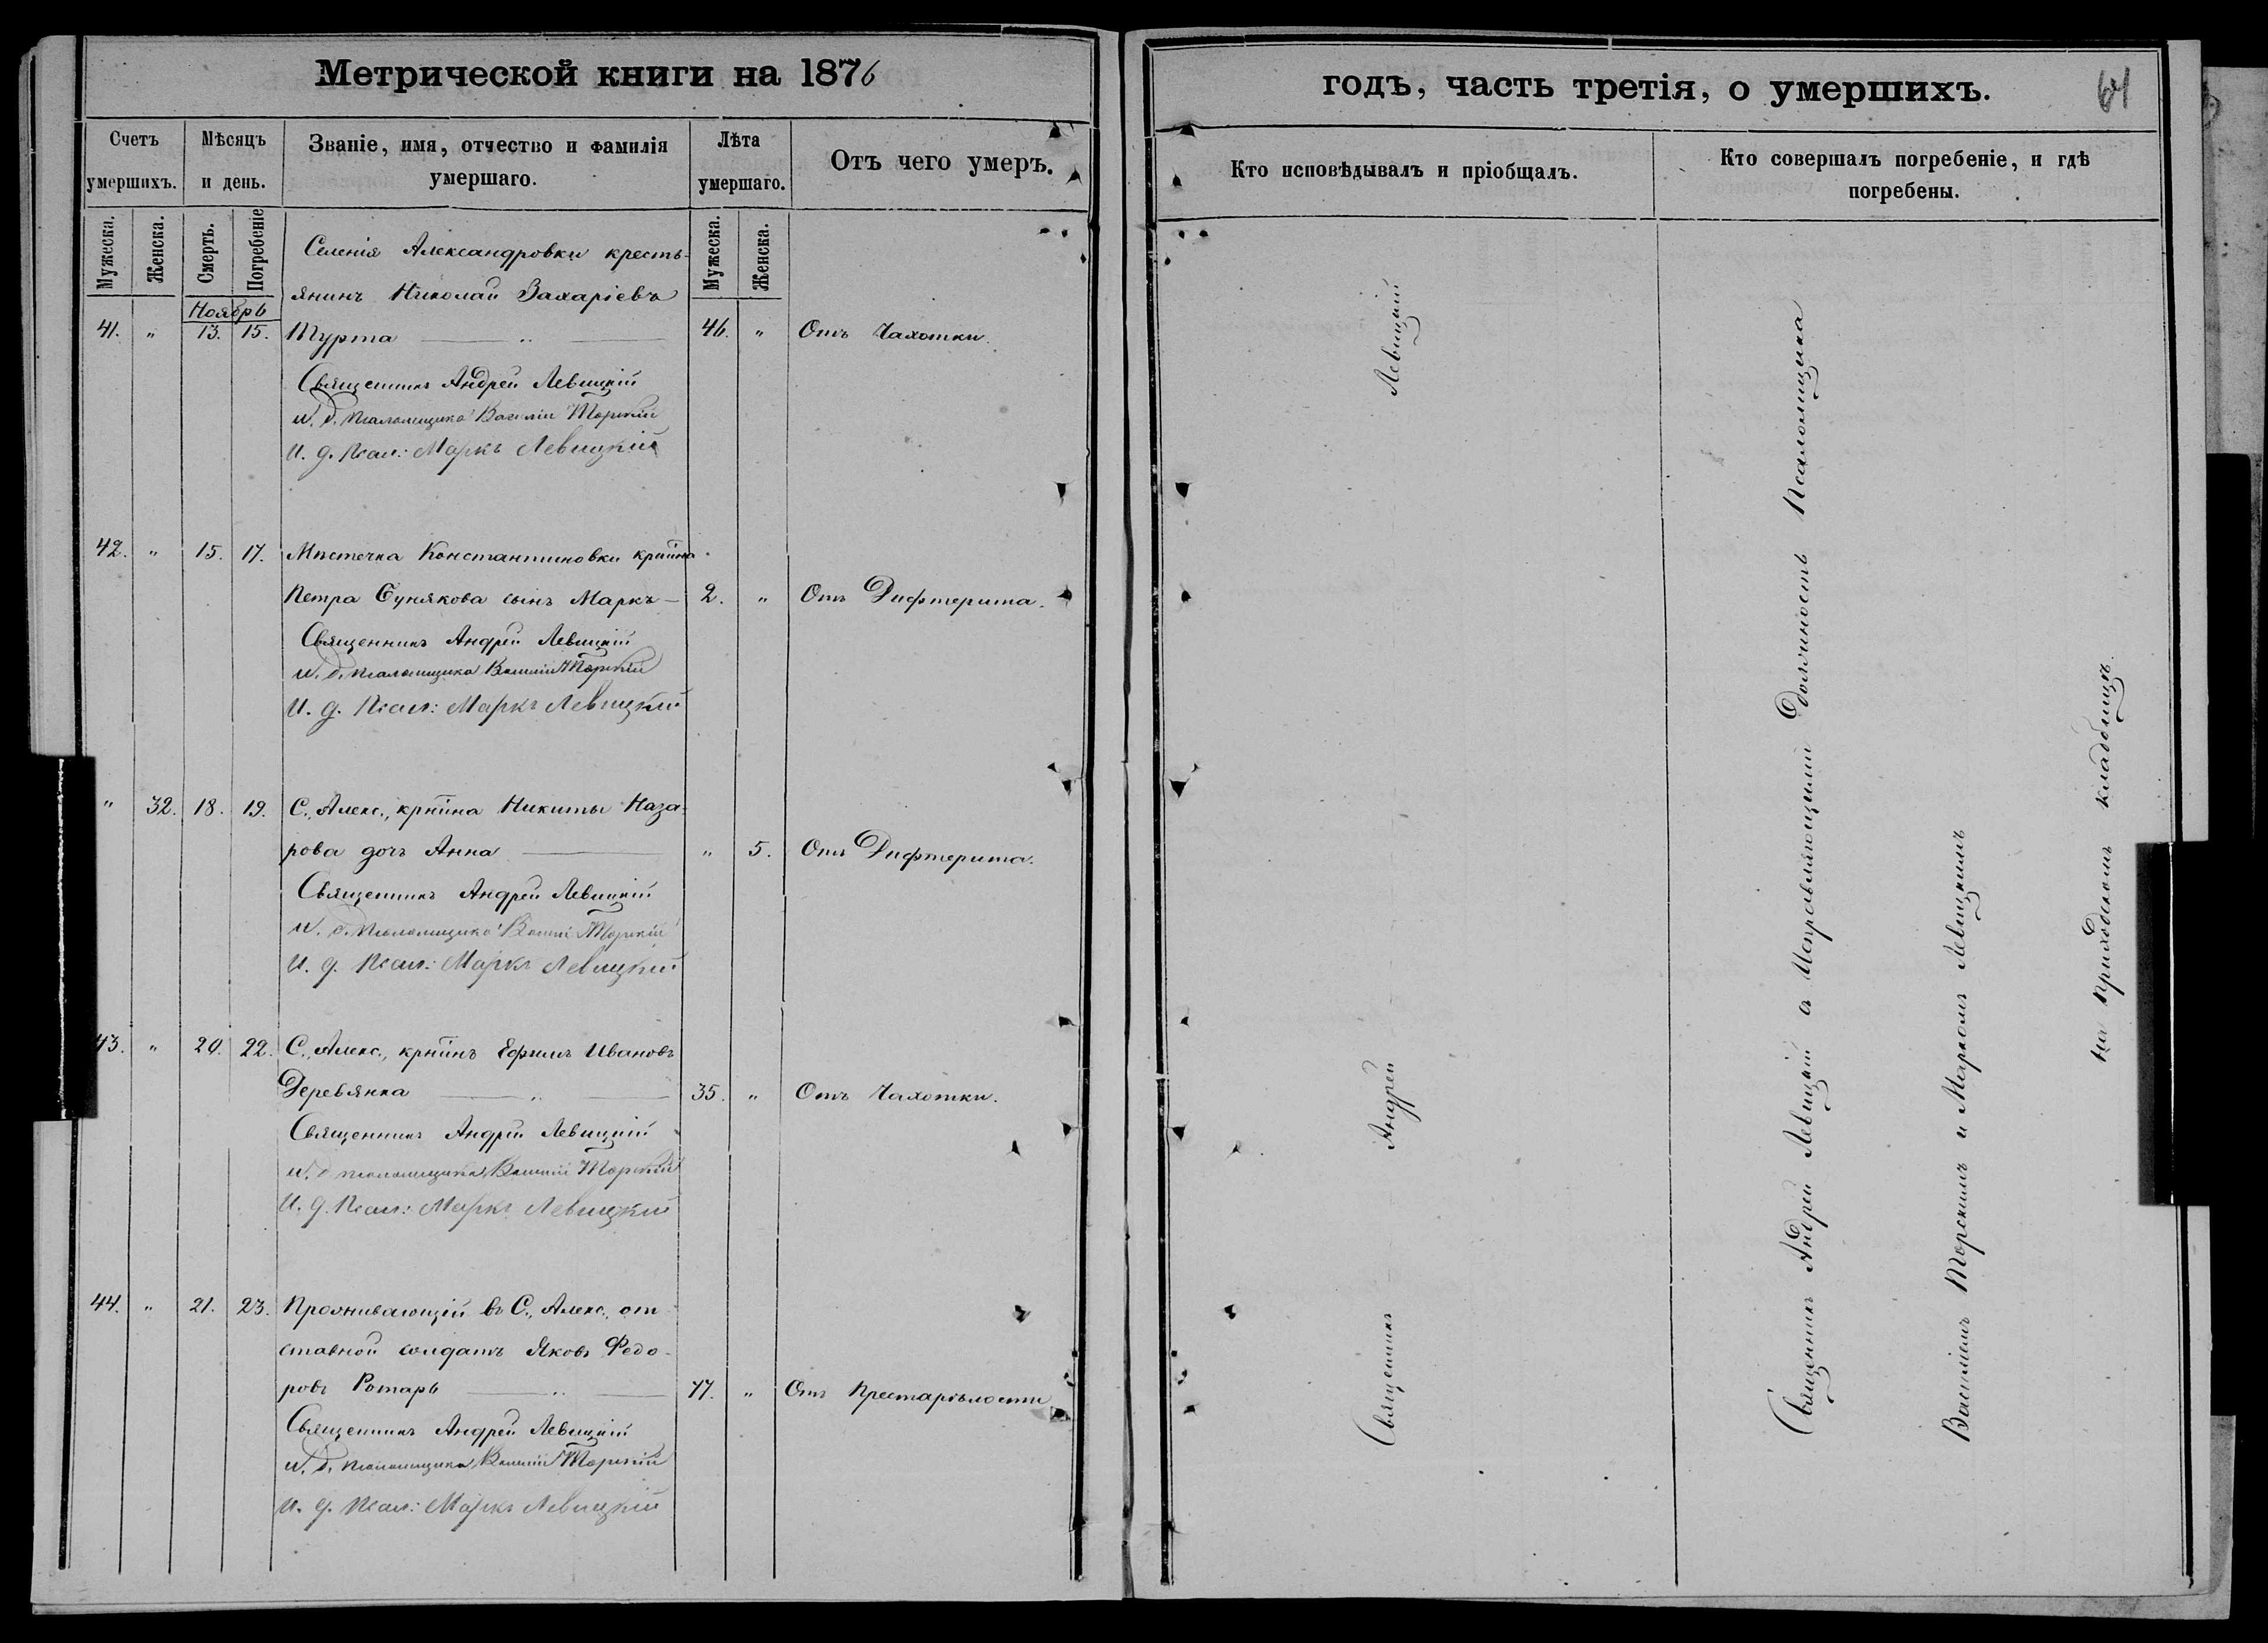 Метрической книги на 1876
годъ, часть третія, о умершихъ.
64
Счетъ умершихъ.
Мѣсяцъ и день.
Званіе, имя, отчество и фамилія умершаго.
Лѣта умершаго.
Отъ чего умеръ.
Кто исповѣдывалъ и пріобщалъ.
Кто совершалъ погребеніе, и гдѣ погребены.
Мужеска.
Женска.
Смерть.
Погребеніе
Мужеска.
Женска.
Ноябрь
Селенія Александровки кресть-
янинъ Николай Захаріевъ
41. " 13. 15. Мурта — " — 46. " Отъ Чахотки.
Священникъ Андрей Левицкій
И. д. псаломщика Василій Торскій
И. д. Псал: Маркъ Левицкій
42. " 15. 17. Мѣстечка Константиновки крт̃ина
Петра Сунякова сынъ Маркъ — 2. " Отъ Дифтерита.
Священникъ Андрей Левицкій
И. д. псаломщика Василій Торскій
И. д. Псал: Маркъ Левицкій
" 32. 18. 19. С., Алекс., крт̃ина Никиты Наза-
рова дочь Анна — " 5. Отъ Дифтерита.
Священникъ Андрей Левицкій
И. д. псаломщика Василій Торскій
И. д. Псал: Маркъ Левицкій
43. " 20. 22. С., Алекс., крт̃инъ Ефимъ Ивановъ
Деревянка — " — 35. " Отъ Чахотки.
Священникъ Андрей Левицкій
И. д. псаломщика Василій Торскій
И. д. Псал: Маркъ Левицкій
44. " 21. 23. Проживающій въ С., Алекс., от-
ставной солдатъ Яковъ Федо-
ровъ Ротарь — " — 77. " Отъ Престарѣлости
Священникъ Андрей Левицкій
И. д. псаломщика Василій Торскій
И. д. Псал: Маркъ Левицкій
Священникъ Андрей Левицкій
Священникъ Андрей Левицкій съ Исправляющими Должность Псаломщика
Василіемъ Торскимъ и Маркомъ Левицкимъ
на приходскомъ кладбищѣ.